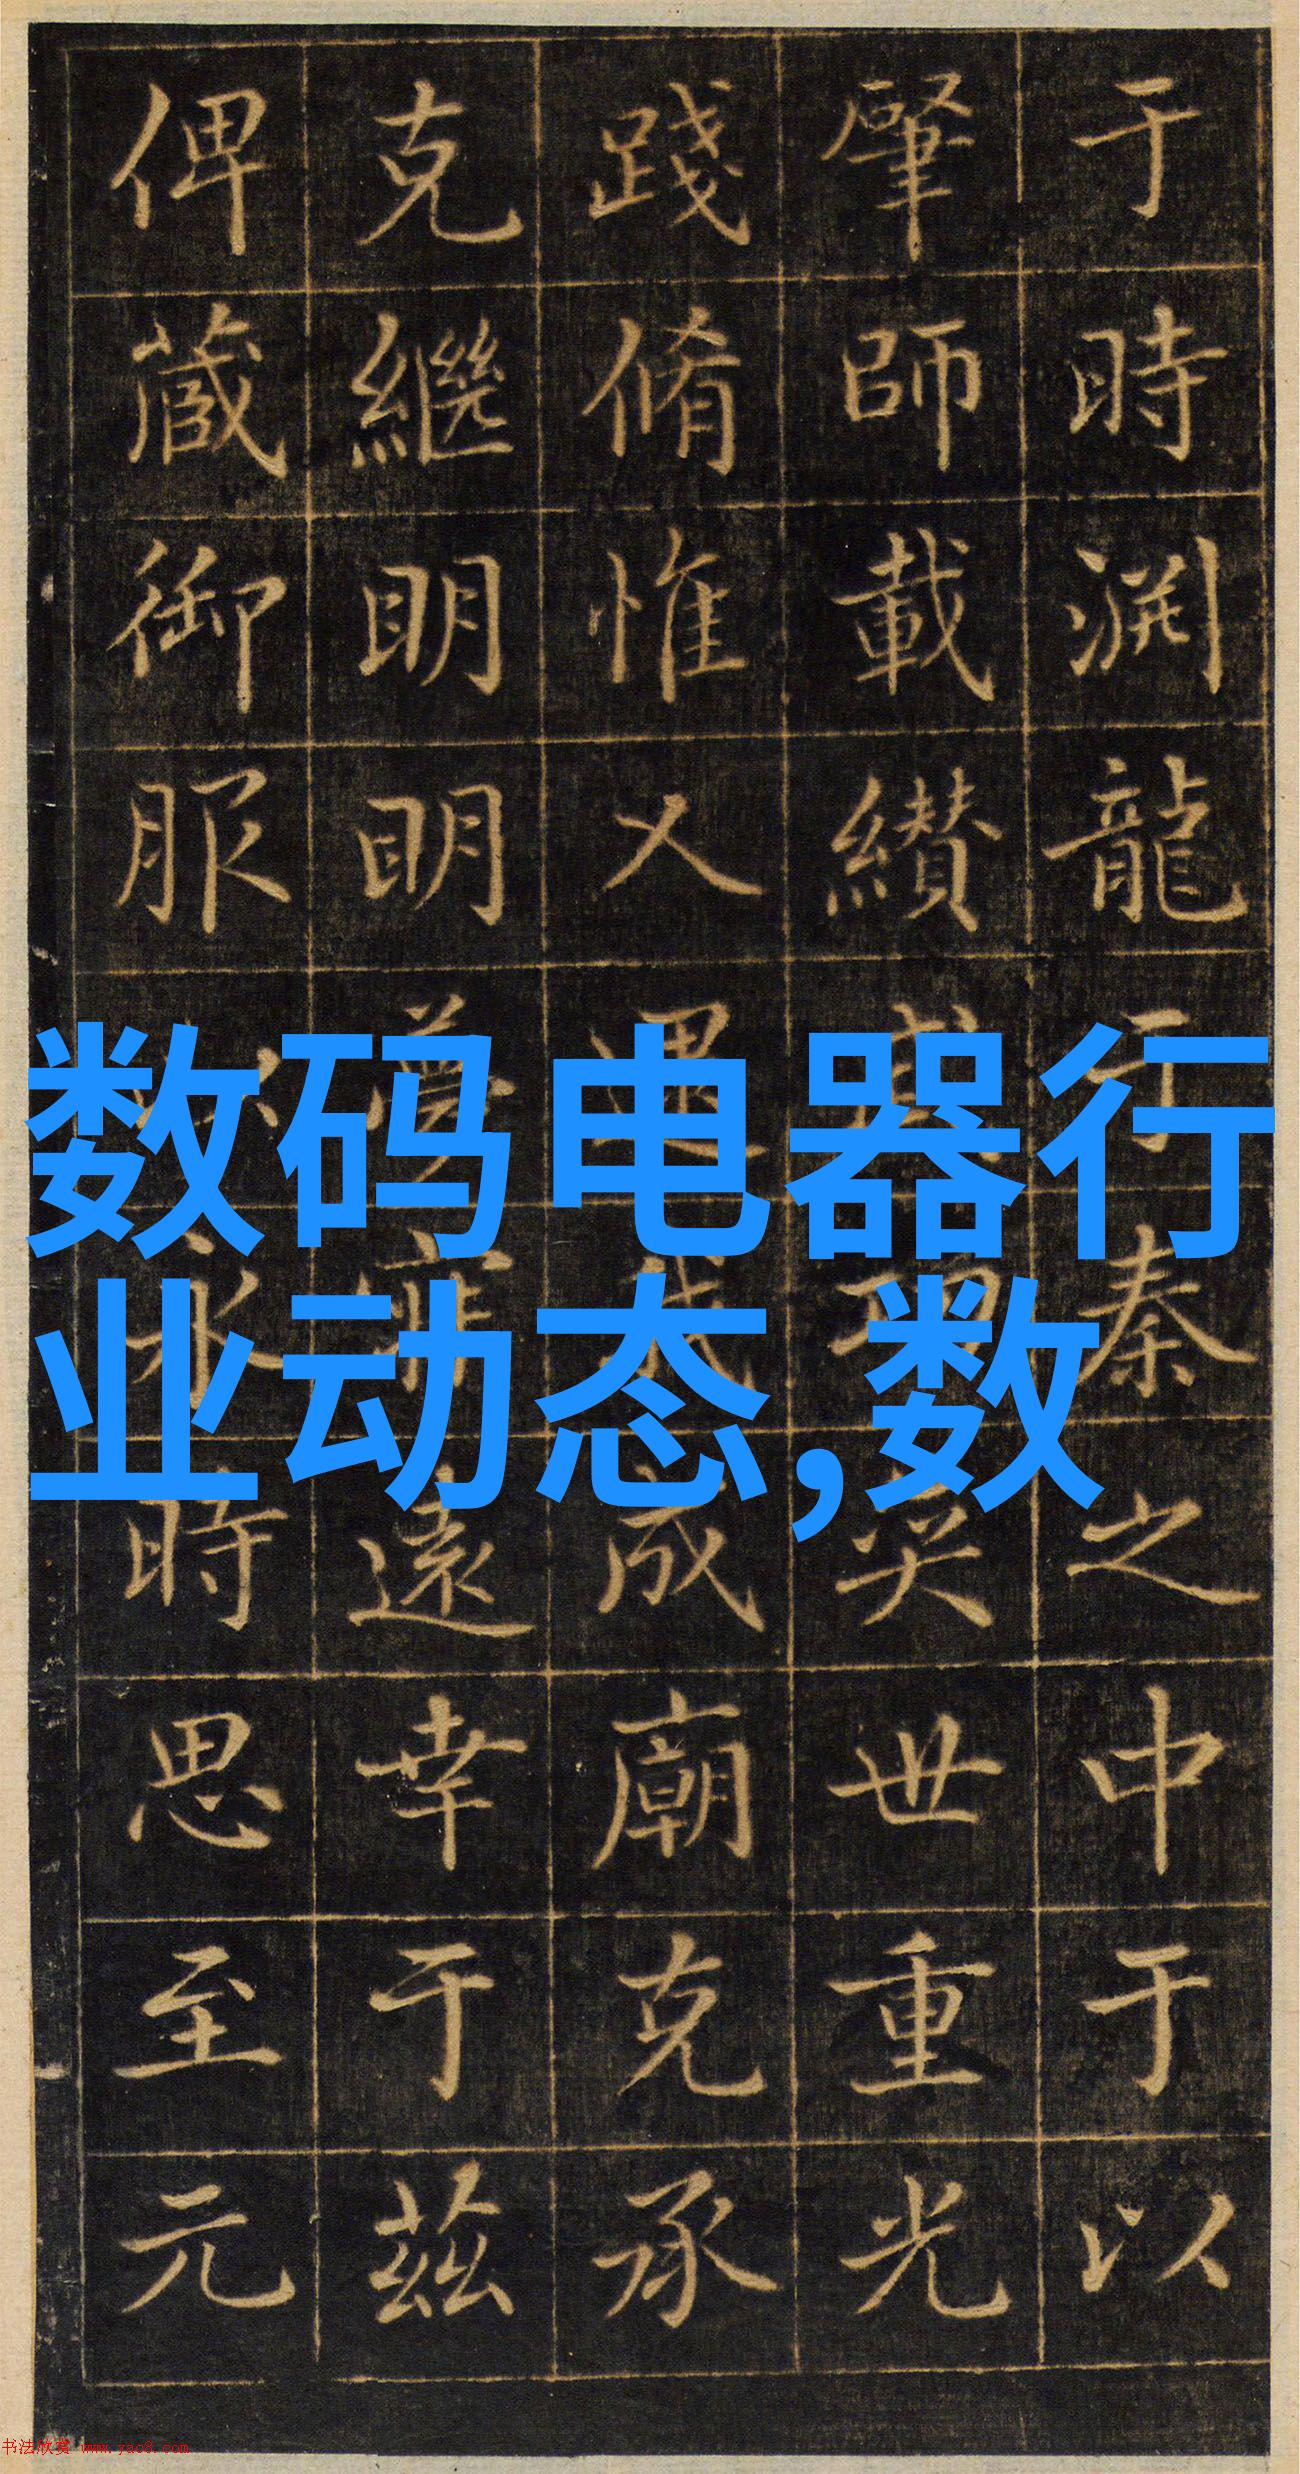 于時渊龍于秦之中于以
肇師載纘世重光
踐脩惟乂成廟克承
克繼明明遠幸于茲
俾蒇御服時思至元
数码电器行
业动态,数
书法欣赏 www.yac8.com